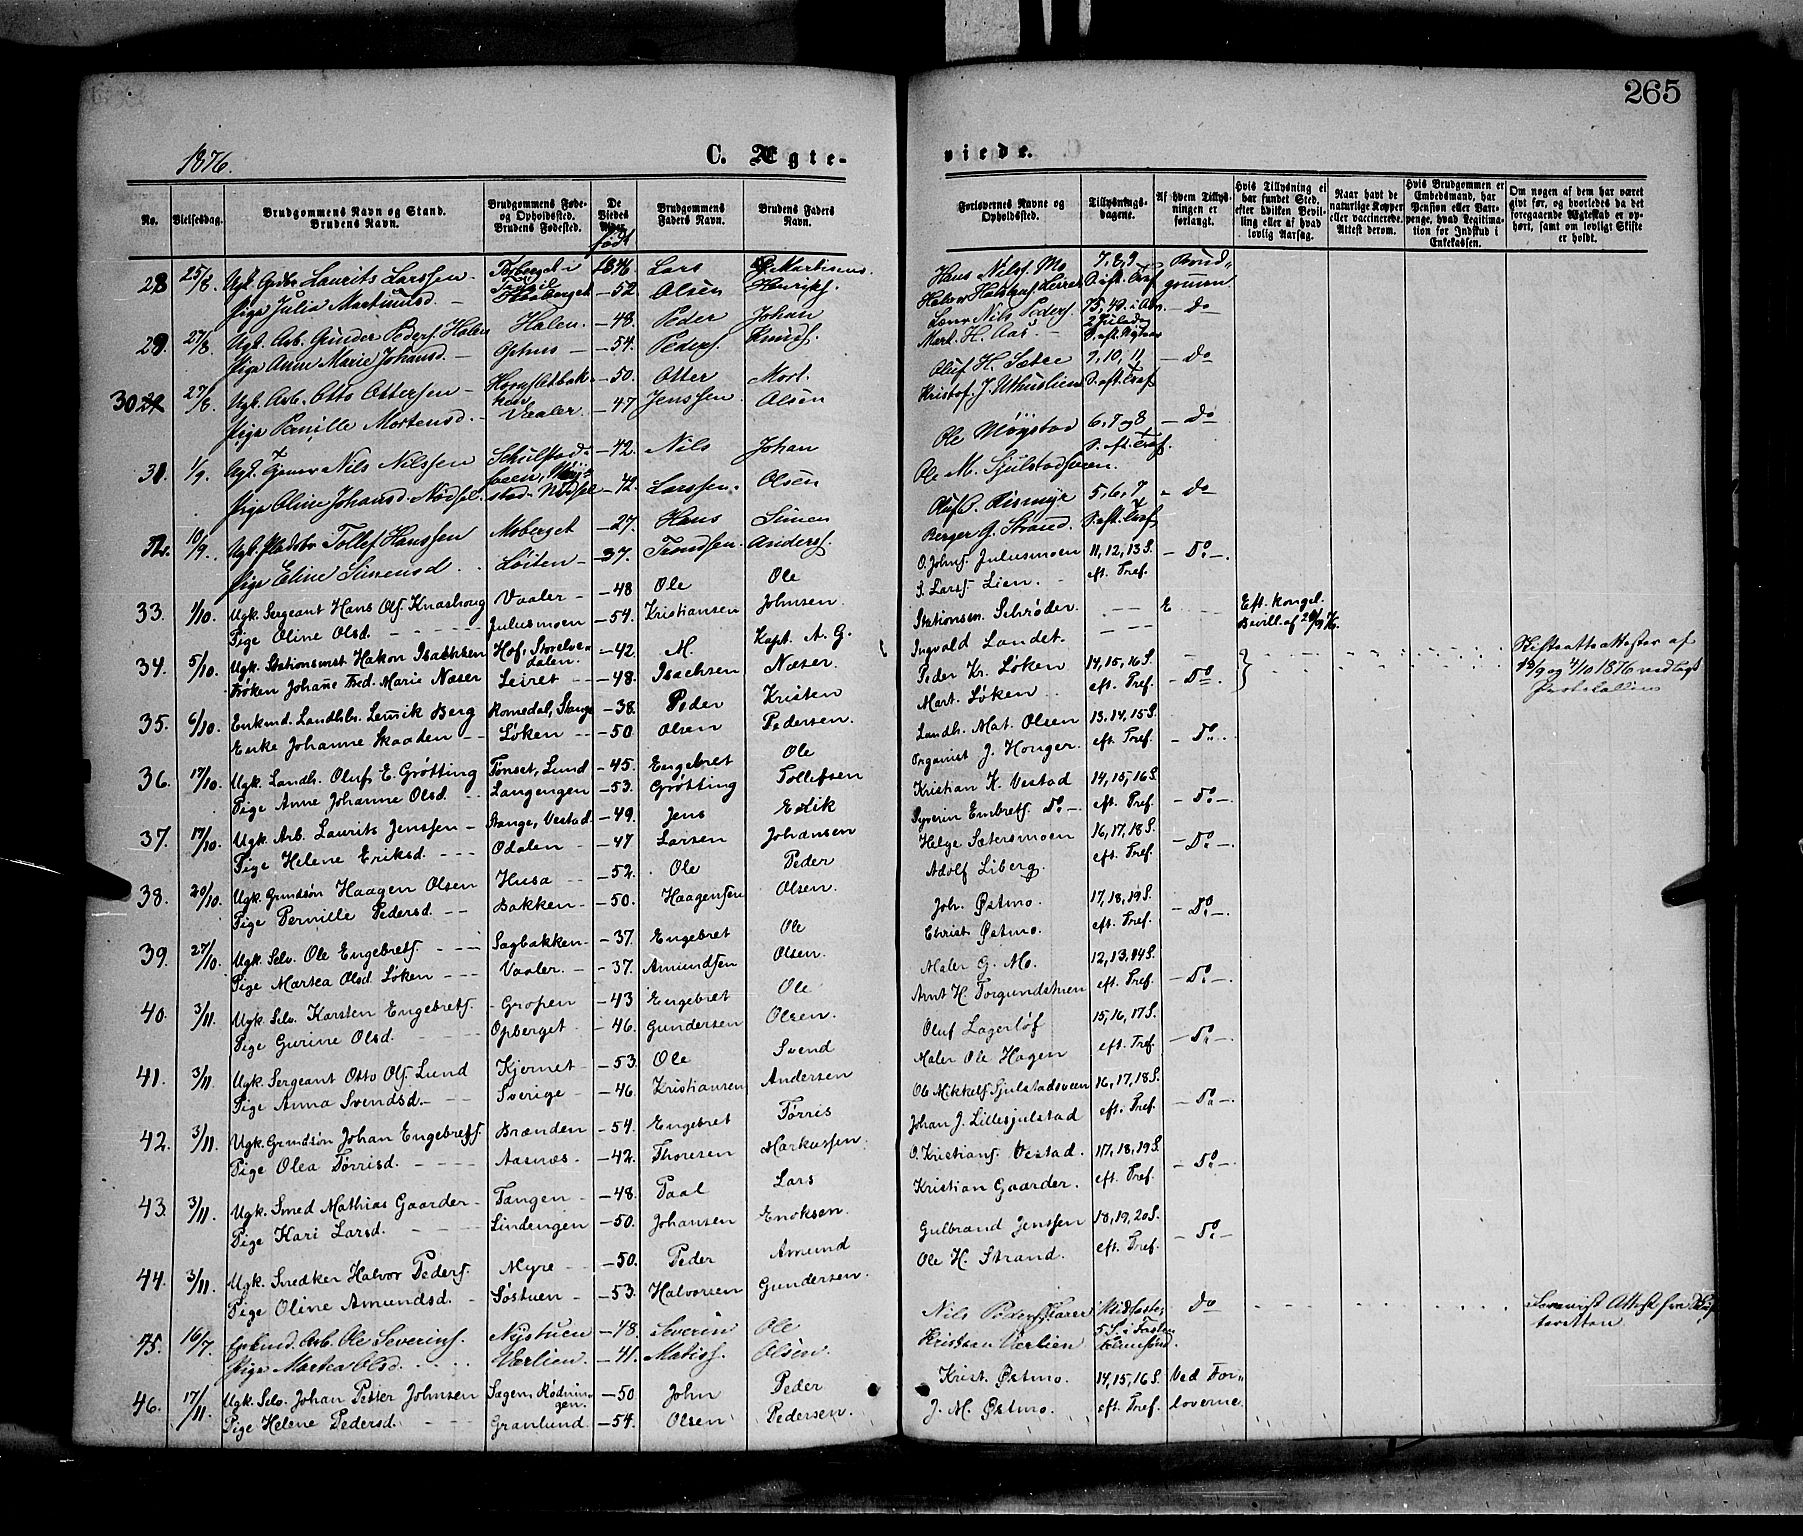 265
1876.
C. Ægte-
viede.
No.
Vielsesdag.
Brudgommens Navn og Stand.
Brudens Navn.
Brudgommens Føde-
og Opholdssted.
Brudens Fødested.
De
Viedes
Alder.
født
Brudgommens
Faders Navn.
Brudens Faders
Navn.
Forlovernes Navne og
Opholdssted.
Tillysnings-
dagene.
Af hvem Tillys-
ningen er
forlangt.
Hvis Tillysning ei
har fundet Sted,
efter hvilken Bevil-
ling eller af hvad
lovlig Aarsag.
Naar havt de
naturlige Kopper
eller vaccinerede.
Attest derom.
Hvis Brudgommen er
Embedsmand, har
Pension eller Var-
penge, hvad Legitima-
tion for Indskud i
Enkekassen.
Om nogen af dem har været
gift før, og hvorledes da det
foregaaende Ægteskab er op-
hørt, samt om lovligt Skifte
er holdt.
28 25/8 Laurits Larssen Lars Martinsen Hans Nilsf. Mo 7, 8, 9 Brud-
Pige Julia Martinusd. — 52. Olsen Henriks. S. eft. Tref. gummen
29. 27/8 Ugk. Arb. Gunder Peders. Halen Halen. — 48. Peder Johan Nils Peders. — do
Pige Anne Marie Johansd. — Ophus — 54. Peders. Knuds. Mart. H. Aas
30 27/8 Ugk. Arb. Otto Ottersen — 50. Otter Mort. Oluf H. Sætre 9, 10, 11 — do
Pige Pernille Mortensd. — Vaaler — 47 Jenssen. Olsen Kristof. J. Uthuslien S. eft. Tref.
31 1/9. Ugk. Nils Nilssen — 42. Nils Johan Ole Møystad 6, 7 og 8 — do
Pige Oline Johansd. Nødsel — 42. Larssen. Olsen Ole M. Sjulstadsveen. S. eft. Tref.
32. 10/9. Ugk. Pladsbr. Tollef Hanssen Moberget — 27. Hans Simen 5, 6, 7 — do
Pige Eline Simensd. Løiten — 37. Trondsen. Anders. Berger G. Strand. S. eft. Tref.
33. 1/10. Ugk. Sergeant Hans Ols. Knashoug Vaaler — 48 Ole Ole O. Johns. Julusmoen 11, 12, 13 S. — Do —
Pige Oline Olsd. Julusmoen — 54. Kristiansen Johnsen. S. Lars. Lien. eft. Tref.
34. 5/10. Ugk. Stationsmst Hakon Isachsen Hof, Storelve-
dalen. — 42. M. Kapt. A. G. Stationsm. Schrøder. — — E Eft. kongel.
Frøken Johanne Fred. Marie Næser Leiret — 48. Isachsen Næser. Ingvald Landet. — — Bevill. af 20/9 76.
35. 6/10. Enkmd. Landhbr. Lemik Berg Romedal, Stange — 38. Peder Kristen Peder Kr. Løken 14, 15, 16 S. — Do — Skifteattester af
Enke Johanne Skaaden — Løken — 50. Olsen Pedersen. Mart. Løken. eft. Tref. og 4/10 1876 vedlagt
Protokollen
36. 17/10. Ugk. Landh. Oluf E. Grøtting Tønset, Lund — 45. Engebret Ole Landh. Mat. Olsen 13, 14, 15 S. — Do —
Pige Anne Johanne Olsd. Langengen — 53. Grøtting Tollefsen Organist J. Honger. eft. Tref.
37. 17/10. Ugk. Arb. Laurits Jenssen Stange, Vestad — 49. Jens Erik Kristian K. Vestad 14, 15, 16 S. — Do —
Pige Helene Eriksd. Odalen — 47 Larsen Johansen Syverin Embrets. Do — eft. Tref.
38. 20/10. Ugk. Grmdsøn Haagen Olsen Husa — 52. Ole Peder Helge Sætersmoen 16, 17, 18 S. — Do —
Pige Pernille Pedersd. Bakken — 50. Haagensen Olsen. Adolf Liberg. eft. Tref.
39. 27/10. Ugk. Selv. Ole Engebrets. Sagbakken — 37. Engebret Ole Joh. Østmo. 17, 18, 19 S. — Do —
Pige Martea Olsd. Løken Vaaler. — 37. Amundsen Olsen. Christ. Østmo. eft. Tref.
40. 3/11. Ugk. Selv. Karsten Engebrets. Gropen — 43 Engebret Ole Maler G. M. 12, 13, 14 S. — Do —
Pige Gurine Olsd. Opberget — 46. Gundersen Olsen. Arnt H. Torgundstuen eft. Tref.
41. 3/11. Ugk. Sergeant Otto Ols. Lund Kjernet — 53. Ole Svend Oluf Lagerlöf 15, 16, 17 S. — Do —
Pige Anna Svendsd. Sverige — 46. Kristiansen Andersen Maler Ole Hagen eft. Tref.
42. 3/11. Ugk. Grmdsøn Johan Engebrets. Brænden — 54. Engebret Tørris Ole Mikkels. Sjulstadsveen 16, 17, 18 S. — Do —
Pige Olea Tørrisd. Aasnæs — 42. Thoresen Markussen. Johan J. Lillesjulstad eft. Tref.
43. 3/11. Ugk. Smed Mathias Gaarder Tangen — 48. Paal Lars O. Kristians. Vestad. 17, 18, 19 S. — Do —
Pige Kari Larsd. Lindengen — 50. Johansen Enoksen. Kristian Gaarder. eft. Tref.
44. 3/11. Ugk. Snedker Halvor Peders. Myre — 50. Peder Amund Gulbrand Jenssen 18, 19, 20 S. — Do —
Pige Oline Amundsd. Søstuen — 53. Halvorsen Gundersen. Ole H. Strand. eft. Tref.
45. 16/7. Enkmd. Arb. Ole Severins. Nystuen — 48. Severin Ole Nils do Attest fra Skif-
teretten
Pige Martha Olsd. Værlien. — 41. Matiss. Olsen. Kristian Værlien
46. 17/11. Ugk. Selv. Johan Petter Johnsen Sagen, Rødnin-
gen. — 50 John Peder Krist. Østmo. 14, 15, 16 S. Ved For-
Pige Helene Pedersd. Granlund — 54. Olsen Pedersen. J. M. Østmo. eft. Tref. loverne.